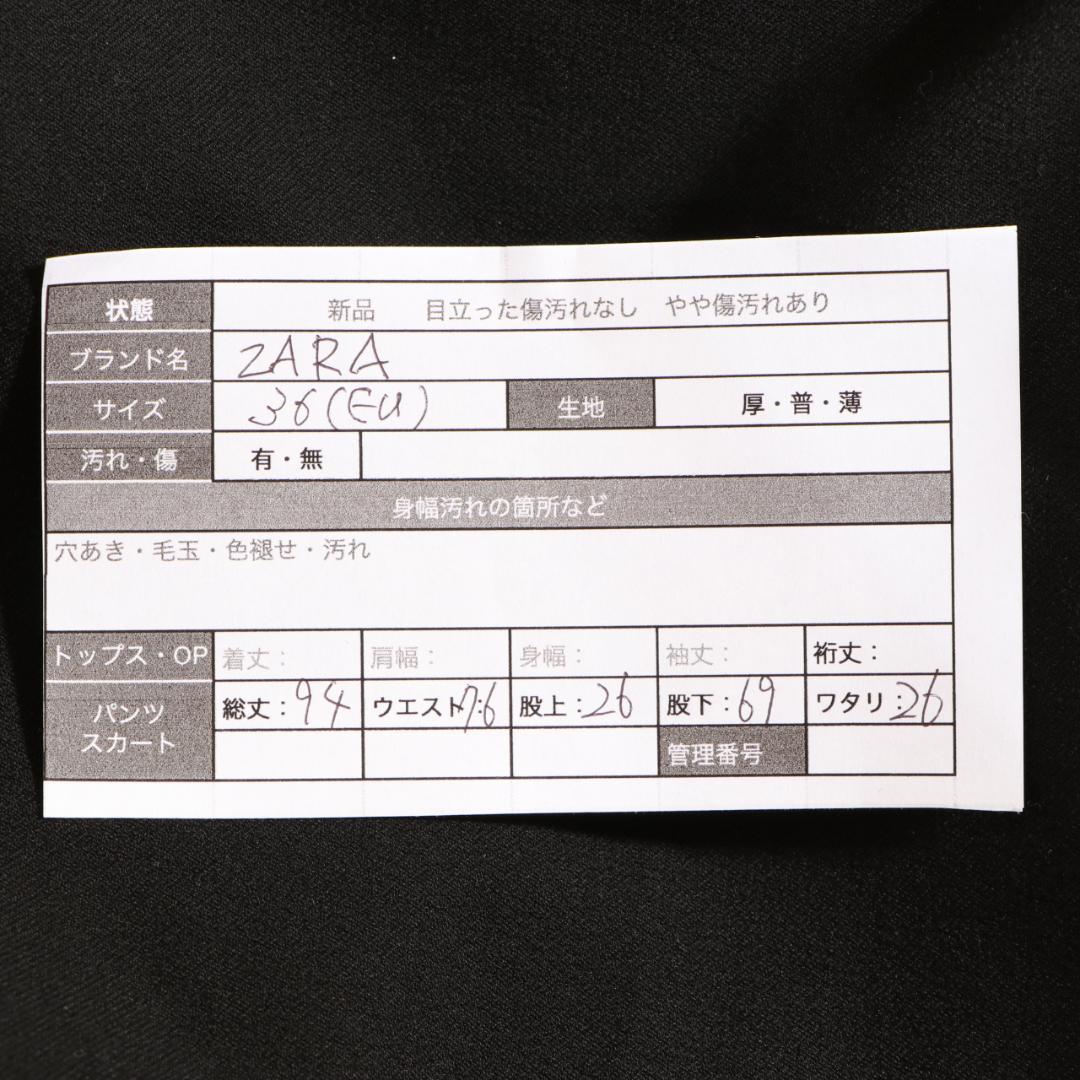 状態 新品 目立った傷汚れなし やや傷汚れあり
ブランド名 ZARA
サイズ 36(EU) 生地 厚・普・薄
汚れ・傷 有・無
身幅汚れの箇所など
穴あき・毛玉・色褪せ・汚れ
トップス・OP 着丈: 肩幅: 身幅: 袖丈: 裄丈:
パンツ スカート 総丈:94 ウエスト:76 股上:26 股下:69 ワタリ:26
管理番号